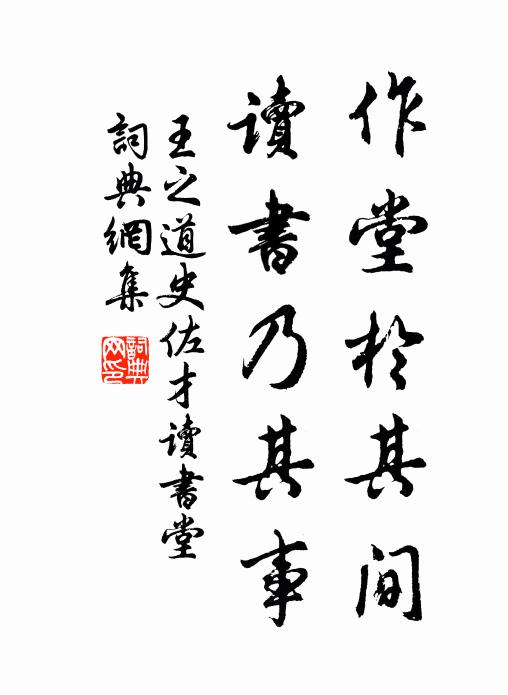 作堂於其间
讀書乃其事
王之道史佐才讀書堂
詞典網集
詞典网印